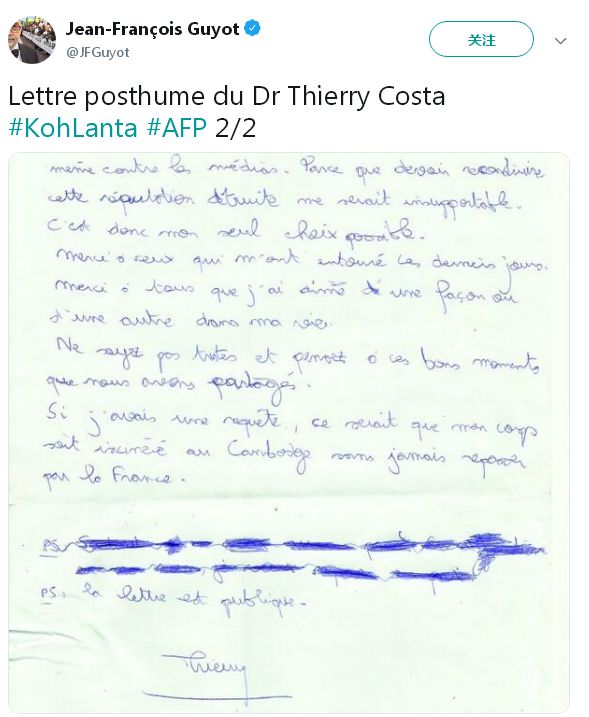 Jean-François Guyot
@JFGuyot
关注
Lettre posthume du Dr Thierry Costa
#KohLanta #AFP 2/2
même contre les médias. Parce que devoir reconstruire
cette réputation détruite me serait insupportable.
C'est donc mon seul choix possible.
Merci à ceux qui m'ont entouré ces derniers jours.
Merci à tous que j'ai aimé d'une façon ou
d'une autre dans ma vie.
Ne soyez pas tristes et pensez à ces bons moments
que nous avons partagés.
Si j'avais une requête, ce serait que mon corps
soit incinéré au Cambodge sans jamais repasser
par la France.
PS:
PS: la lettre est publique.
Thierry